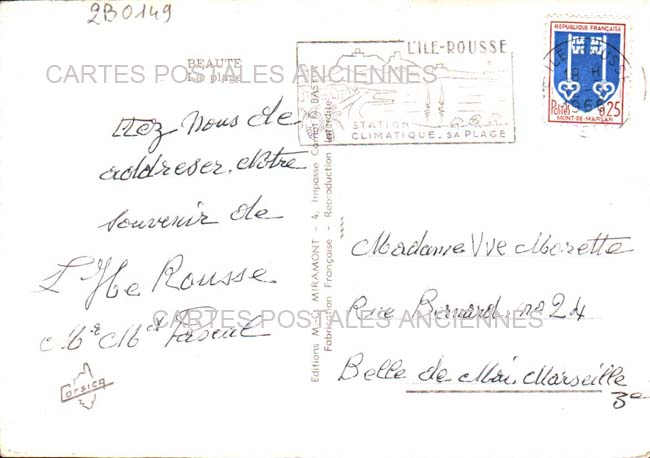 2B0149
BEAUTE
La plage
CARTES POSTALES ANCIENNES
L'ILE-ROUSSE
STATION
CLIMATIQUE. SA PLAGE
REPUBLIQUE FRANÇAISE
Postes 0,25
MONT-DE-MARSAN
nous de
addresser. Notre
souvenir de
L'Ile Rousse
Mr et Me Pascal
Corsica
Editions M. MIRAMONT - 4, Impasse Carnot BAST
Fabrication Française - Reproduction Interdite
Madame Vve Morette
Rue Bernard no 24
CARTES POSTALES ANCIENNES
Belle de Mai. Marseille
3e